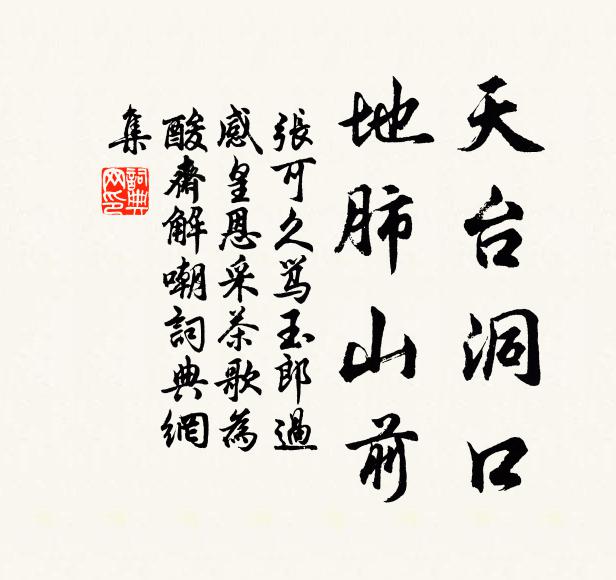 天台洞口
地肺山前
張可久罵玉郎過
感皇恩采茶歌為
酸齋解嘲詞典網
集
詞典網印